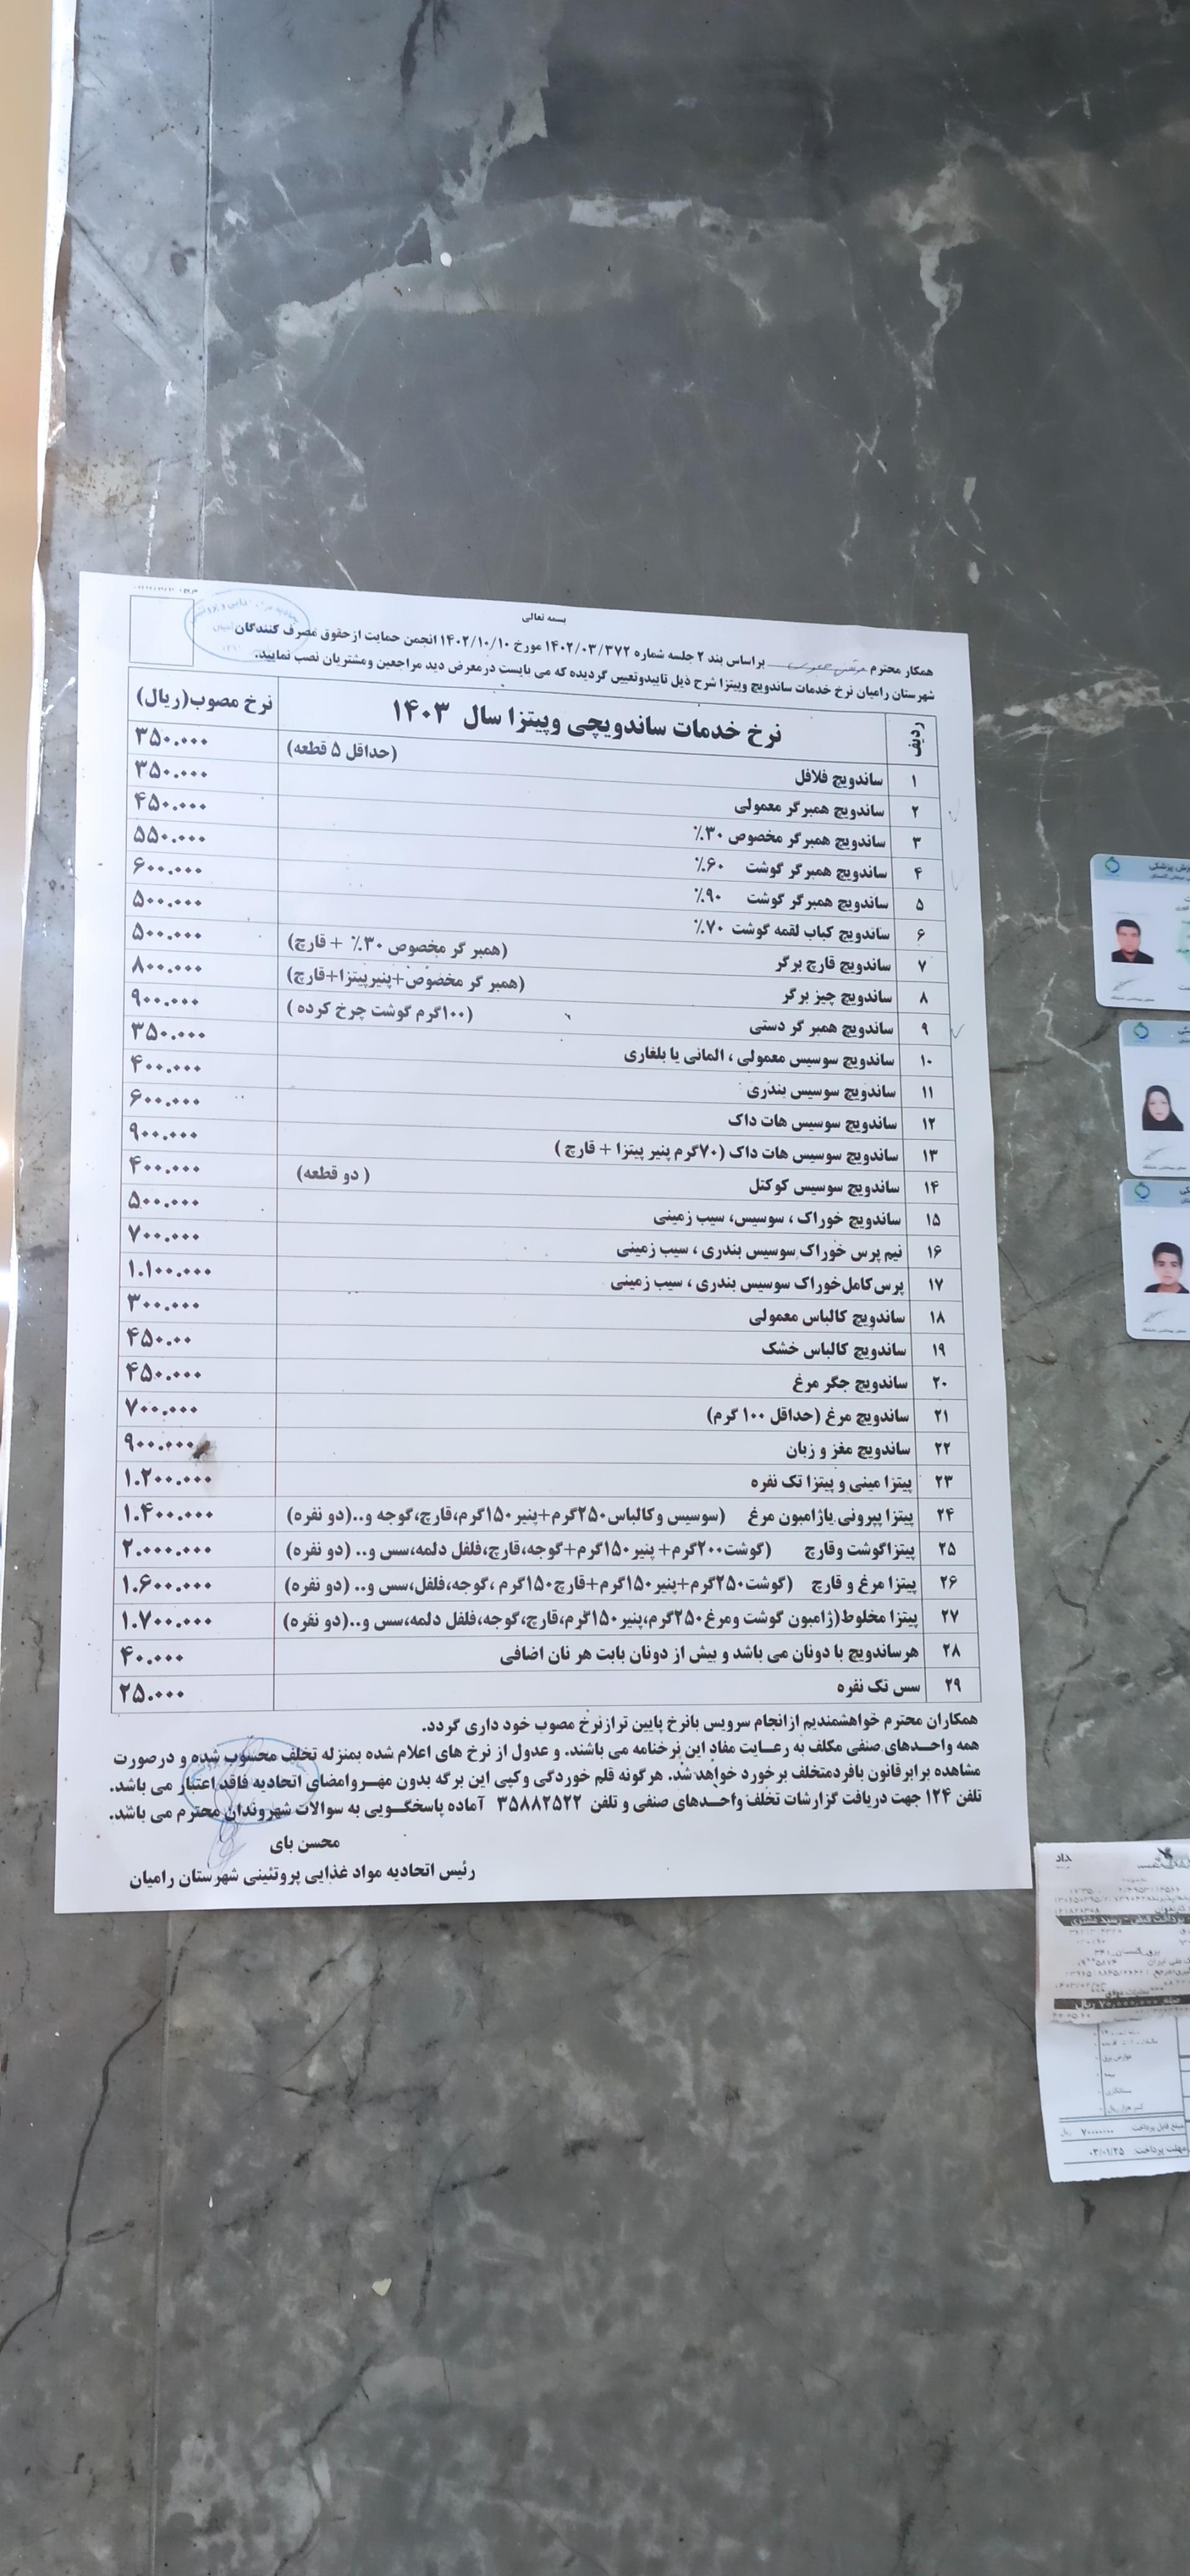 بسمه تعالی
همکار محترم براساس بند ۲ جلسه شماره ۱۴۰۲/۰۳/۳۷۲ مورخ ۱۴۰۲/۱۰/۱۰ انجمن حمایت از حقوق مصرف کنندگان
شهرستان رامیان نرخ خدمات ساندویچ وپیتزا شرح ذیل تاییدوتعیین گردیده که می بایست درمعرض دید مراجعین ومشتریان نصب نمایید.
ردیف نرخ خدمات ساندویچی وپیتزا سال ۱۴۰۳ نرخ مصوب(ریال)
۱ ساندویچ فلافل (حداقل ۵ قطعه) ۳۵۰.۰۰۰
۲ ساندویچ همبرگر معمولی ۳۵۰.۰۰۰
۳ ساندویچ همبرگر مخصوص ۳۰٪ ۴۵۰.۰۰۰
۴ ساندویچ همبرگر گوشت ۶۰٪ ۵۵۰.۰۰۰
۵ ساندویچ همبرگر گوشت ۹۰٪ ۶۰۰.۰۰۰
۶ ساندویچ کباب لقمه گوشت ۷۰٪ ۵۰۰.۰۰۰
۷ ساندویچ قارچ برگر (همبر گر مخصوص ۳۰٪ + قارچ) ۵۰۰.۰۰۰
۸ ساندویچ چیز برگر (همبر گر مخصوص+پنیرپیتزا+قارچ) ۸۰۰.۰۰۰
۹ ساندویچ همبر گر دستی (۱۰۰گرم گوشت چرخ کرده ) ۹۰۰.۰۰۰
۱۰ ساندویچ سوسیس معمولی ، المانی یا بلغاری ۳۵۰.۰۰۰
۱۱ ساندویچ سوسیس بندری ۴۰۰.۰۰۰
۱۲ ساندویچ سوسیس هات داک ۶۰۰.۰۰۰
۱۳ ساندویچ سوسیس هات داک (۷۰گرم پنیر پیتزا + قارچ ) ۹۰۰.۰۰۰
۱۴ ساندویچ سوسیس کوکتل ( دو قطعه) ۴۰۰.۰۰۰
۱۵ ساندویچ خوراک ، سوسیس، سیب زمینی ۵۰۰.۰۰۰
۱۶ نیم پرس خوراک سوسیس بندری ، سیب زمینی ۷۰۰.۰۰۰
۱۷ پرس کامل خوراک سوسیس بندری ، سیب زمینی ۱.۱۰۰.۰۰۰
۱۸ ساندویچ کالباس معمولی ۳۰۰.۰۰۰
۱۹ ساندویچ کالباس خشک ۴۵۰.۰۰
۲۰ ساندویچ جگر مرغ ۴۵۰.۰۰۰
۲۱ ساندویچ مرغ (حداقل ۱۰۰ گرم) ۷۰۰.۰۰۰
۲۲ ساندویچ مغز و زبان ۹۰۰.۰۰۰
۲۳ پیتزا مینی و پیتزا تک نفره ۱.۲۰۰.۰۰۰
۲۴ پیتزا پپرونی یاژامبون مرغ (سوسیس وکالباس۲۵۰گرم+پنیر۱۵۰گرم،قارچ،گوجه و..(دو نفره) ۱.۴۰۰.۰۰۰
۲۵ پیتزاگوشت وقارچ (گوشت۲۰۰گرم+ پنیر۱۵۰گرم+گوجه،قارچ،فلفل دلمه،سس و.. (دو نفره) ۲.۰۰۰.۰۰۰
۲۶ پیتزا مرغ و قارچ (گوشت۲۵۰گرم+پنیر۱۵۰گرم+قارچ۱۵۰گرم ،گوجه،فلفل،سس و.. (دو نفره) ۱.۶۰۰.۰۰۰
۲۷ پیتزا مخلوط(ژامبون گوشت ومرغ۲۵۰گرم،پنیر۱۵۰گرم،قارچ،گوجه،فلفل دلمه،سس و..(دو نفره) ۱.۷۰۰.۰۰۰
۲۸ هرساندویچ با دونان می باشد و بیش از دونان بابت هر نان اضافی ۴۰.۰۰۰
۲۹ سس تک نفره ۲۵.۰۰۰
همکاران محترم خواهشمندیم ازانجام سرویس بانرخ پایین ترازنرخ مصوب خود داری گردد.
همه واحـدهای صنفی مکلف به رعـایت مفاد این نرخنامه می باشند. و عدول از نرخ های اعلام شده بمنزله تخلف محسوب شده و درصورت
مشاهده برابرقانون بافردمتخلف برخورد خواهد شد. هرگونه قلم خوردگی وکپی این برگه بدون مهـروامضای اتحادیه فاقد اعتبار می باشد.
تلفن ۱۲۴ جهت دریافت گزارشات تخلف واحـدهای صنفی و تلفن ۳۵۸۸۲۵۲۲ آماده پاسخگـویی به سوالات شهروندان محترم می باشد.
محسن بای
رئیس اتحادیه مواد غذایی پروتئینی شهرستان رامیان
مبلغ ۷۰,۰۰۰,۰۰۰ ریال
عوارض برق
بیمه
بستانکاری
کسر هزار ریال
مبلغ قابل پرداخت ۷۰۰۰۰۰۰۰ ریال
مهلت پرداخت: ۰۳/۰۱/۲۵